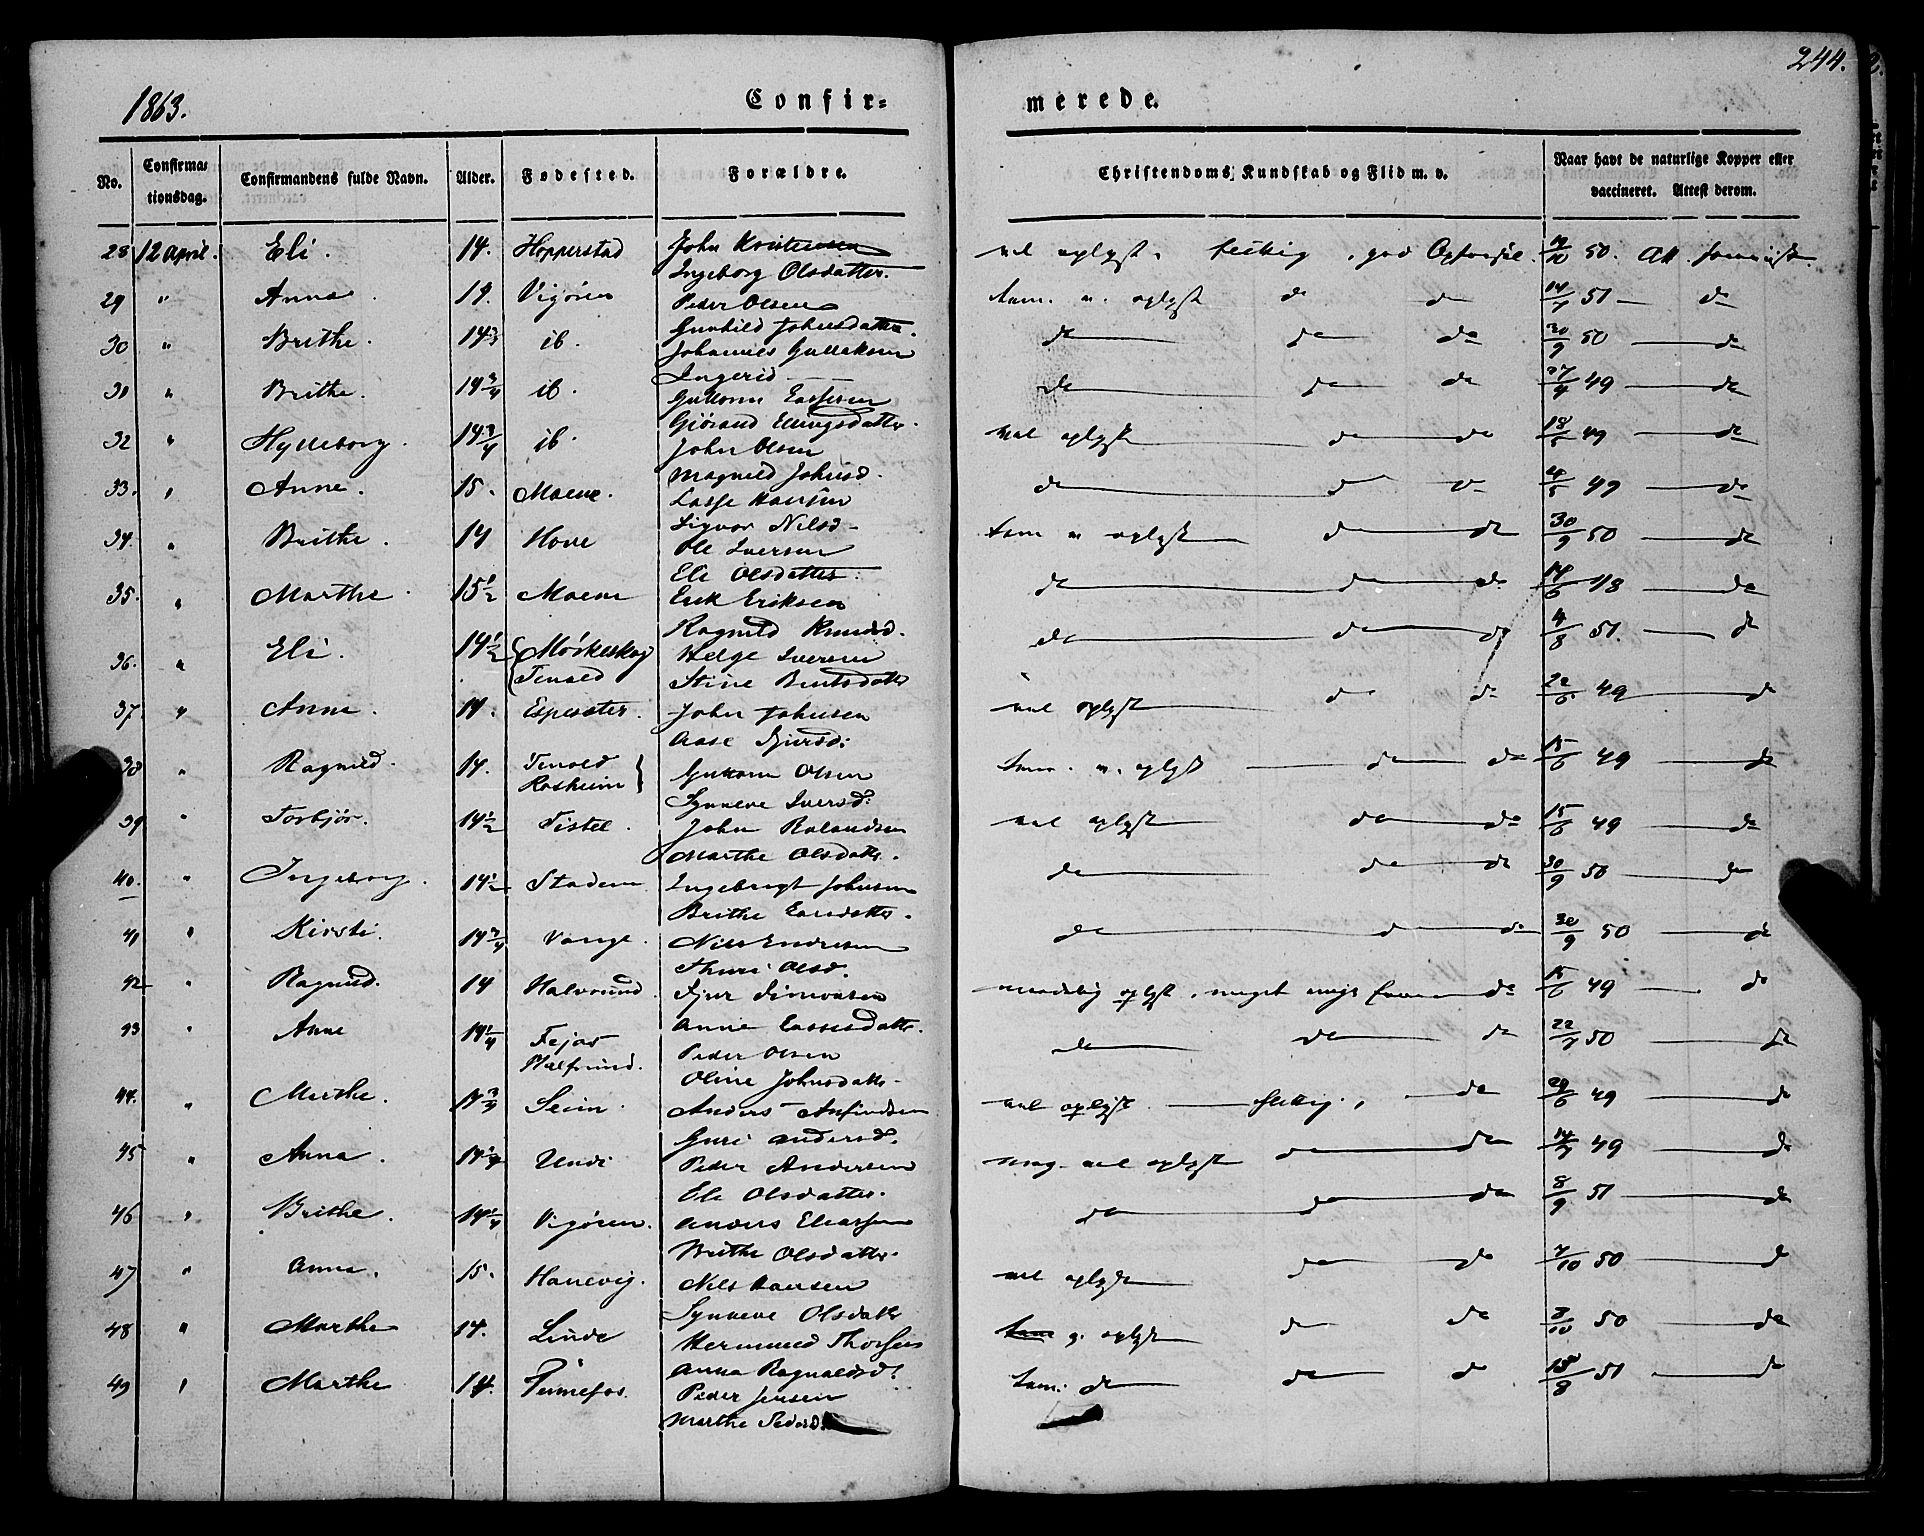 1863.
Confir=
merede.
244.
No.
Confirma=
tionsdag.
Confirmandens fulde Navn.
Alder.
Fødested.
Forældre.
Christendoms, Kundskab og Flid m. v.
Naar havt de naturlige Kopper eller
vaccineret. Attest derom.
28 12 April. Eli. 14. Hopperstad John
Ingeborg Olsdatter.
vel oplyst. flittig, god Opførsel. 50. Att.
29 " Anna 14 Vigøren Peder Olsen
Gunhild Johnsdatter.
tem. v. oplyst do do 14/7 51 do
30 " Brithe. 14 3/4 ib. Johannes Gulleksen
Ingerid
do do do 30/9 50 do
31 " Brithe. 14 3/4 ib. Guttorm Lassesen
Gjørand Ellingsdatter.
do do do 27/4 49 do
32 " Hylleborg. 14 3/4 ib. John Olsen
Magnild Johnsd.
vel oplyst do do 18/5 49 do
33. " Anne. 15. Moene. Lasse Hansen
Sigvor Nilsd
do do do 4/5 49 do
34. " Brithe. 14 Hove Ole Iversen
Eli Olsdatter.
tem v oplyst do do 30/9 50 do
35. " Marthe. 15 1/2 Moene Erik Eriksen
Ragnild Knudsd.
do do do 14/6 48 do
36. " Eli. 14 1/2 Mørkeskog
Tenold
Helge Iversen
Stine Bentsdatter
do do do 4/8 51. do
37. " Anne. 14. Espesæter. John Johnsen
Aase Sjursd:
vel oplyst do do 22/6 49 do
38 " Ragnild. 14. Tenold
Rosheim
Guttorm Olsen
Synneve Iversd:
tem. v. oplyst do do 15/6 49 do
39 " Torbjør. 14 1/2 Tistel. John Rolandsen
Marthe Olsdatter.
vel oplyst do do 15/6 49 do
40. " Ingeborg. 14 1/2 Stadem Ingebrigt Johnsen
Brithe Larsdatter.
do do do 30/9 50 do
41 " Kirsti. 14 3/4 Vange. Nils Endresen
Thuri Olsd.
do do do 30/9 50 do
42 " Ragnild. 14 Halvrund. Sjur Simonsen
Anne Lassesdatter.
maadelig oplyst, meget do 15/6 49 do
43 " Anne 14 1/4 Fejos
Halfrund.
Peder Olsen
Oline Johnsdatter
do do do 22/7 50 do
44. " Marthe. 14 3/4 Seim. Anders Anfindsen
Guri Andersd.
vel oplyst flittig, do 29/6 49 do
45 " Anna. 14 3/4 Undi Peder Andersen
Eli Olsdatter.
meg. vel oplyst do do 14/7 49 do
46 " Brithe. 14 1/4 Vigøren. Anders Eliassen
Brithe Olsdatter.
do do do 8/9 51 do
47 " Anna. 15. Hanevig. Nils Hansen
Synneve Olsdatter
vel oplyst do do 7/10 50 do
48 " Marthe 14. Linde Hermund Thorsen
Anna Ragnaldsd.
tem g. oplyst do do 3/10 50 do
49 " Marthe 14. Finnefos. Peder Jensen
Marthe Pedersd.
tem. do do do 15/8 51 do